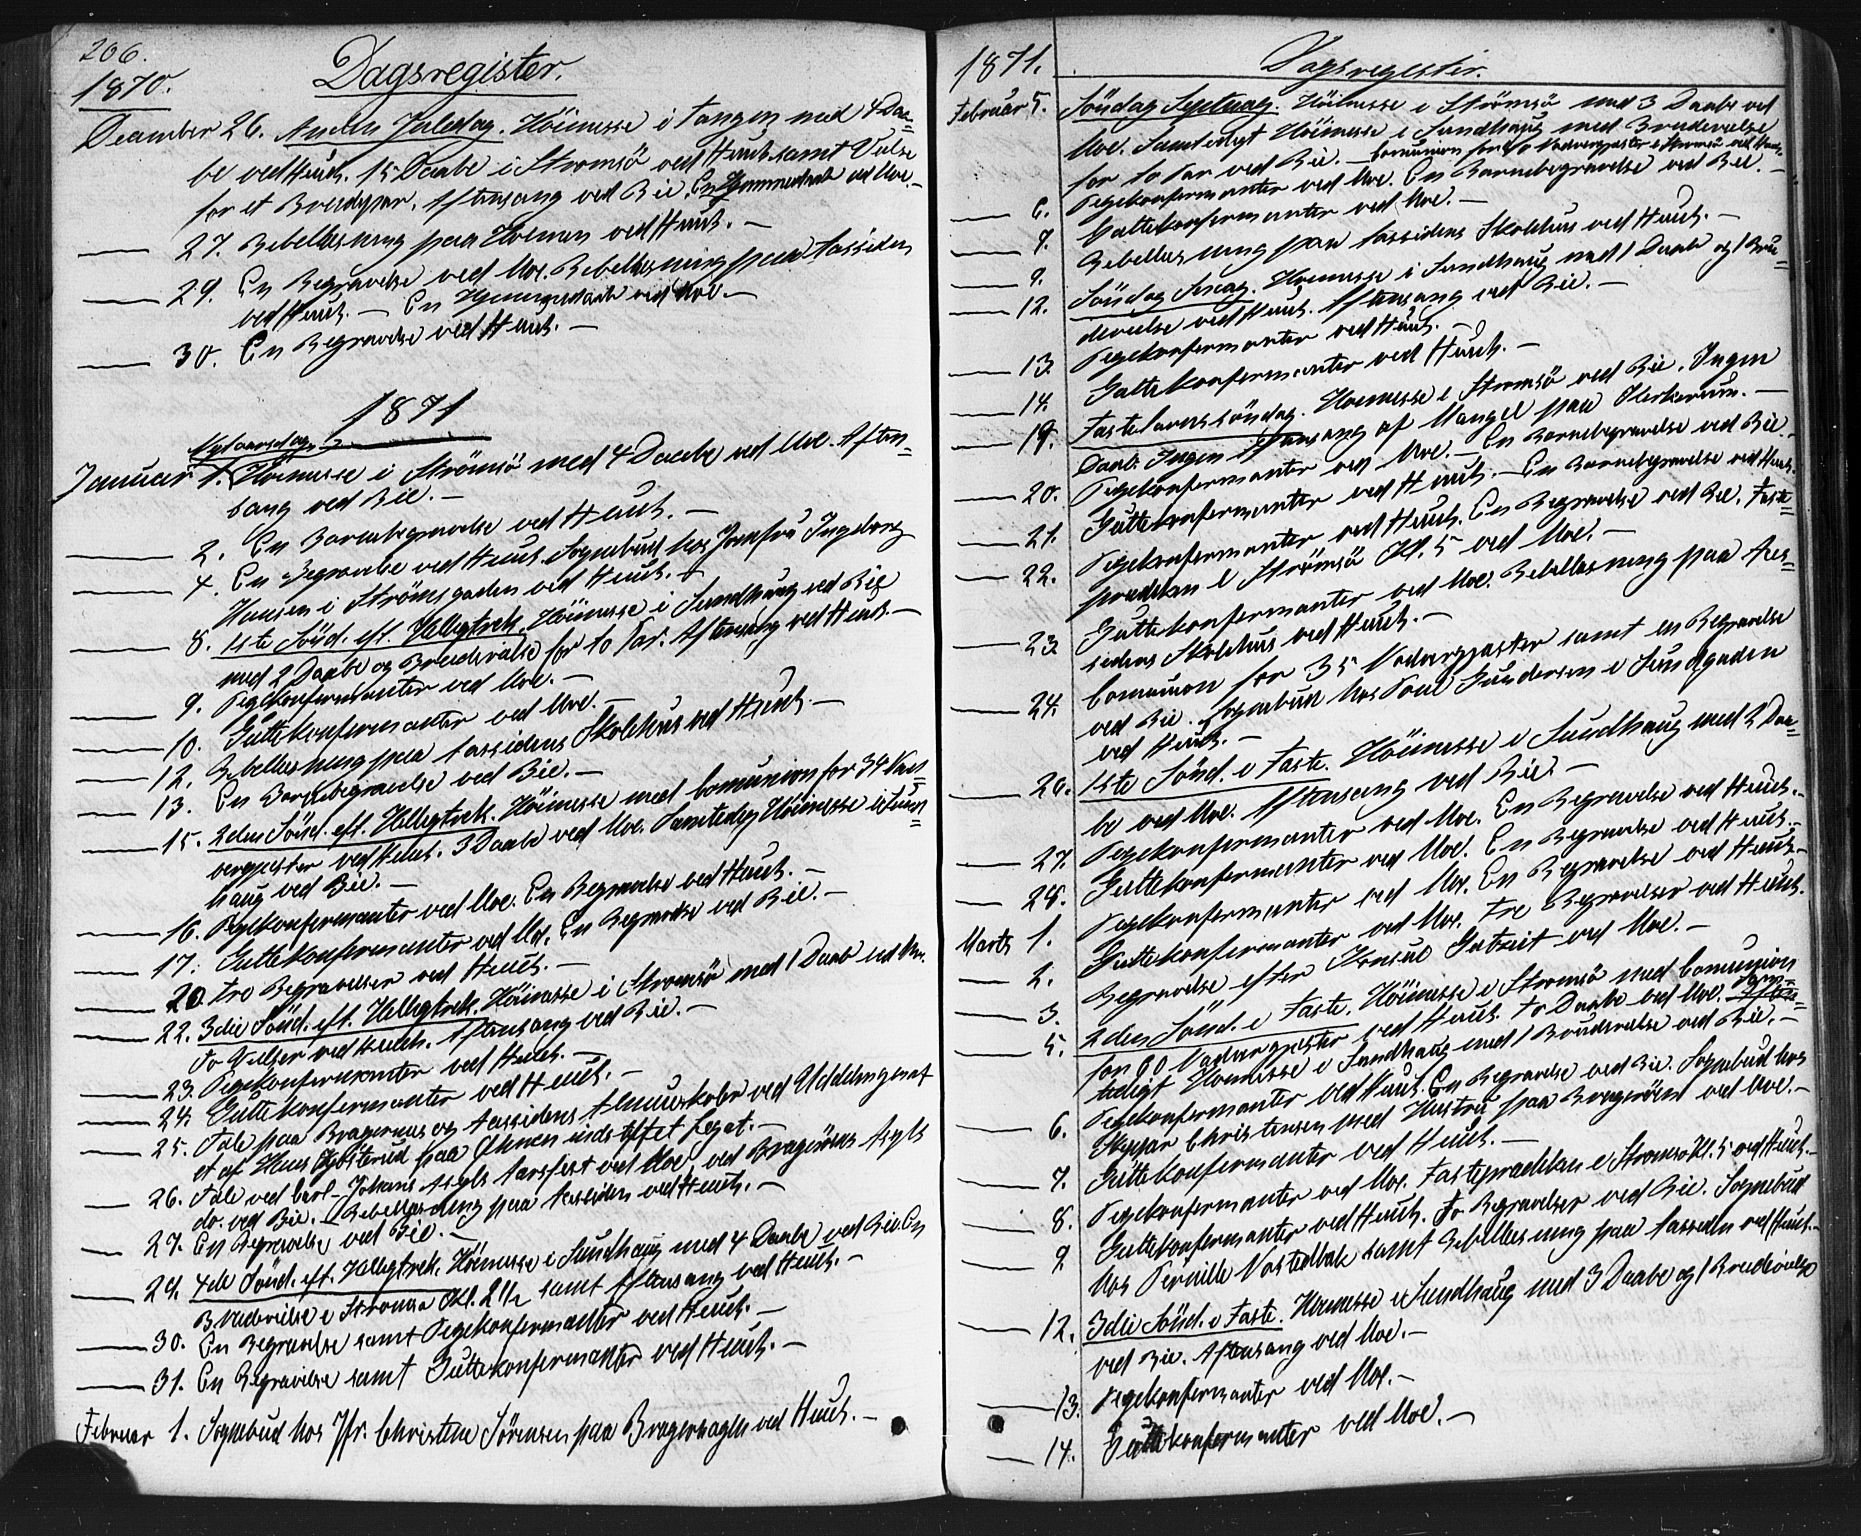 206.
1870.
Dagsregister.
December 26. Anden Juledag. Höimesse i Tangen med 4 Daa=
be ved Heuch. 15 Daabe i Strömsö ved Heuch samt Vielse
for et Brudepar. Aftensang ved Bie. En Hjemmedaab ved Moe.—
27. Bibellæsning paa Holmen ved Heuch.—
29. En Begravelse ved Moe. Bibellæsning paa Aassiden
ved Heuch.— En Hjemmedaab ved Moe.—
30. En Begravelse ved Heuch.—
1871
Nytaarsdag.
Januar 1. Höimesse i Strömsö med 4 Daabe ved Moe. Aften=
sang ved Bie.—
2. En Barnebegravelse ved Heuch.—
4. En Begravelse ved Heuch. Sognebud hos Jomfru Ingeborg
Hansen i Strömsgaden ved Heuch.—
8. 1ste Sönd. eft. Helligtrek. Höimesse i Sundhaug ved Bie
med 2 Daabe og Brudevielse for 10 Par. Aftensang ved Heuch.—
9. Pigekonfermanter ved Moe.—
10. Guttekonfermanter ved Moe.—
12. Bibellæsning paa Aassidens Skolehus ved Heuch.—
13. En Barnebegravelse ved Bie.—
15. 2den Sönd. eft. Helligtrek. Höimesse med Comunion for 34 Nad=
vergjester ved Heuch. 3 Daabe ved Moe. Samtidig Höimesse i Sund=
haug ved Bie.—
16. Pigekonfermanter ved Moe. En Begravelse ved Heuch.—
17. Guttekonfermanter ved Moe. En Begravelse ved Bie.—
20. Tre Begravelser ved Heuch.—
22. 3die Sönd. eft. Helligtrek. Höimesse i Strömsö med 1 Daab ved Moe.
To Vielser ved Heuch. Aftensang ved Bie.—
23. Pigekonfermanter ved Heuch.—
24. Guttekonfermanter ved Heuch.—
25. Tale paa Bragernæs og Aassidens Almueskoler ved Uddelingen af
et af Hans Kjösterud paa Ahnen indstiftet Legat.—
26. Tale ved Carl-Johans Asyls Aarsfest ved Moe, ved Bragernæs Asyls
do. ved Bie.— Bibellæsning paa Aassiden ved Heuch.—
27. En Begravelse ved Bie.—
29. 4de Sönd. eft. Helligtrek. Höimesse i Sundhaug med 4 Daabe ved Bie. En
Brudevielse i Strömsö Kl. 2½ samt Aftensang ved Heuch.—
30. En Begravelse samt Pigekonfermanter ved Heuch.—
31. En Begravelse samt Guttekonfermanter ved Heuch.—
Februar 1. Sognebud hos Jfr. Christine Sörensen paa Bragerhagen ved Heuch.—
1871.
Dagsregister.
Februar 5. Söndag Septuag. Höimesse i Strömsö med 3 Daabe ved
Moe. Samtidigt Höimesse i Sundhaug med Brudevielse
for 10 Par ved Bie.— Comunion for Nadvergjester i Strömsö ved Heuch.
6. Pigekonfermanter ved Moe. En Barnebegravelse ved Bie.—
7. Guttekonfermanter ved Moe.—
9. Bibellæsning paa Aassidens Skolehus ved Heuch.—
12. Söndag Sexag. Höimesse i Sundhaug med 1 Daab og 1 Bru=
devielse ved Heuch. Aftensang ved Bie.—
13. Pigekonfermanter ved Heuch.—
14. Guttekonfermanter ved Heuch.—
19. Fastelavnssöndag. Höimesse i Strömsö ved Bie. Ingen
Daab. Ingen Aftensang af Mangel paa Kirkerum.—
20. Pigekonfermanter ved Moe.— En Barnebegravelse ved Bie.—
21. Guttekonfermanter ved Heuch.— En Barnebegravelse ved Heuch.
22. Pigekonfermanter ved Heuch. En Begravelse ved Bie. Faste=
prædiken i Strömsö Kl. 5 ved Moe.—
23. Guttekonfermanter ved Moe. Bibellæsning paa Aas=
sidens Skolehus ved Heuch.—
24. Comunion for 35 Nadvergjester samt en Begravelse
ved Bie. Sognebud hos Poul Gundersen i Sundgaden
ved Heuch.—
26. 1ste Sönd. i Faste. Höimesse i Sundhaug med 2 Daa=
be ved Moe. Aftensang ved Bie.—
27. Pigekonfermanter ved Moe. En Begravelse ved Heuch.—
28. Guttekonfermanter ved Moe. En Begravelse ved Heuch.—
Marts 1. Pigekonfermanter ved Moe. En Begravelse ved Heuch.—
2. Guttekonfermanter ved Moe. Tre Begravelser ved Heuch.
3. Begravelse efter Konsul Gutzeit ved Moe.—
5. 2den Sönd. i Faste. Höimesse i Strömsö med Comunion
for 90 Nadvergjester ved Heuch. To Daabe ved Moe. Sam=
tidigt Höimesse i Sundhaug med 1 Brudevielse ved Bie.—
6. Pigekonfermanter ved Heuch. En Begravelse ved Bie. Sognebud hos
Skipper Christensen med Hustru paa Bragerören ved Moe.—
7. Guttekonfermanter ved Heuch.—
8. Pigekonfermanter ved Moe. Fasteprædiken i Strömsö Kl. 5 ved Heuch.—
9. Guttekonfermanter ved Heuch. To Begravelser ved Bie. Sognebud
hos Pernille samt Bibellæsning paa Aassiden ved Heuch.—
12. 3die Sönd. i Faste. Höimesse i Sundhaug med 3 Daabe og 1 Brudevielse
ved Bie. Aftensang ved Moe.—
13. Pigekonfermanter ved Moe.—
14. Guttekonfermanter ved Moe.—